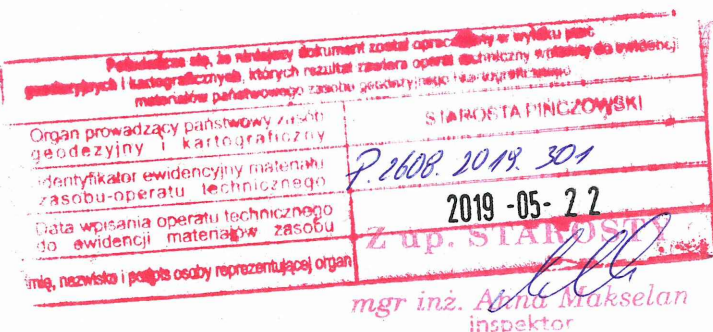 Poświadcza się, że niniejszy dokument został opracowany w wyniku prac
geodezyjnych i kartograficznych, których rezultat zawiera operat techniczny wpisany do ewidencji
materiałów państwowego zasobu geodezyjnego i kartograficznego
Organ prowadzący państwowy zasób
geodezyjny i kartograficzny
STAROSTA PIŃCZOWSKI
Identyfikator ewidencyjny materiału
zasobu-operatu technicznego
P.2608.2019.301
Data wpisania operatu technicznego
do ewidencji materiałów zasobu
2019 -05- 22
Z up. STAROSTY
Imię, nazwisko i podpis osoby reprezentującej organ
mgr inż. Anna Makselan
inspektor